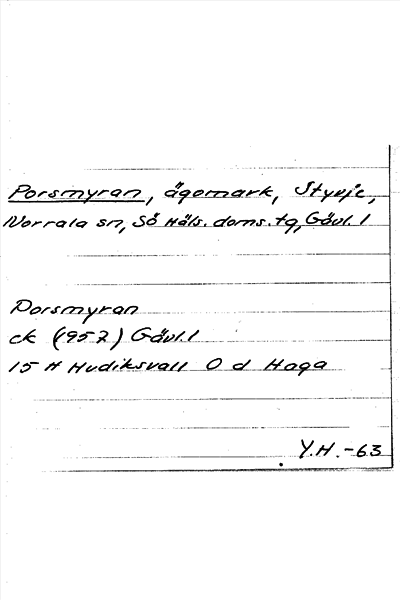 Porsmyran, ägomark, Styvje,
Norrala sn, Sö Häls. doms. tg, Gävl. l
Porsmyran
ek (1957) Gävl. l
15 H Hudiksvall O d Haga
Y.H. -63